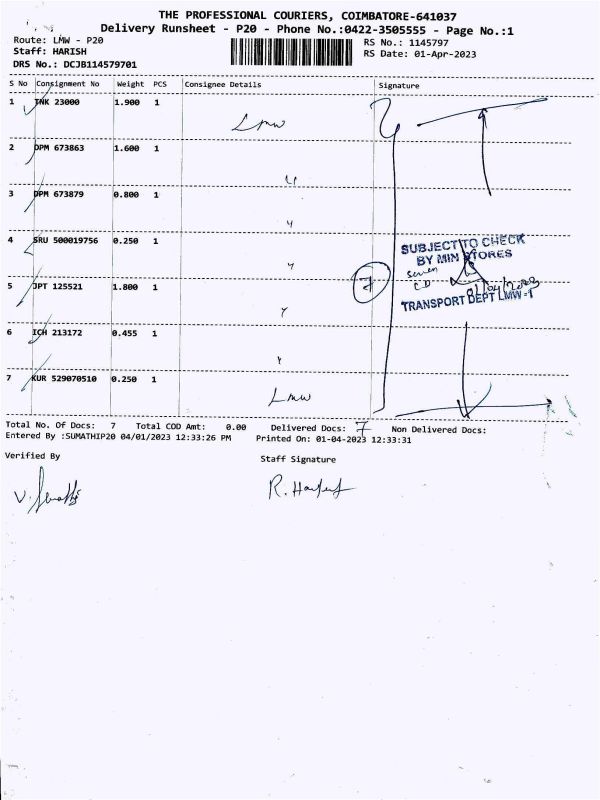 THE PROFESSIONAL COURIERS, COIMBATORE-641037
Delivery Runsheet - P20 - Phone No.:0422-3505555 - Page No.:1
Route: LMW - P20
RS No.: 1145797
Staff: HARISH
RS Date: 01-Apr-2023
DRS No.: DCJB114579701
S No Consignment No Weight PCS Consignee Details Signature
1 TNK 23000 1.900 1 Lmw
2 DPM 673863 1.600 1 "
3 DPM 673879 0.800 1 "
4 SRU 500019756 0.250 1 "
SUBJECT TO CHECK
BY MIM STORES
seven
7
TRANSPORT DEPT LMW-1
5 JPT 125521 1.800 1 "
6 ICH 213172 0.455 1 "
7 KUR 529070510 0.250 1 Lmw
Total No. Of Docs: 7 Total COD Amt: 0.00 Delivered Docs: 7 Non Delivered Docs:
Entered By :SUMATHIP20 04/01/2023 12:33:26 PM Printed On: 01-04-2023 12:33:31
Verified By
Staff Signature